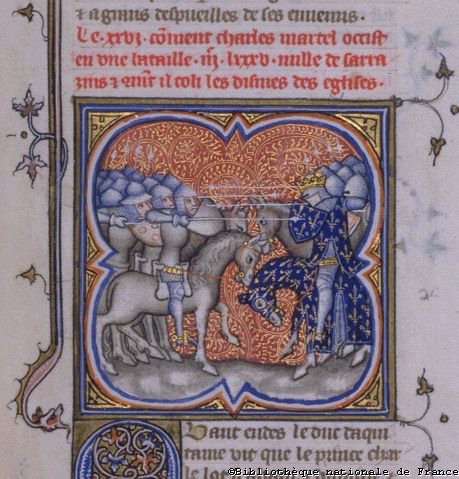 & agmus despueilles de ses ennemis.
Le .xxvi. coment charles martel occist
en une bataille .iiiᶜ. iiiiˣˣ v. mille de sarra
zins & coment il toli les dismes des eglises.
Quant eudes le duc daqui
taine vit que le prince char
©Bibliothèque nationale de France